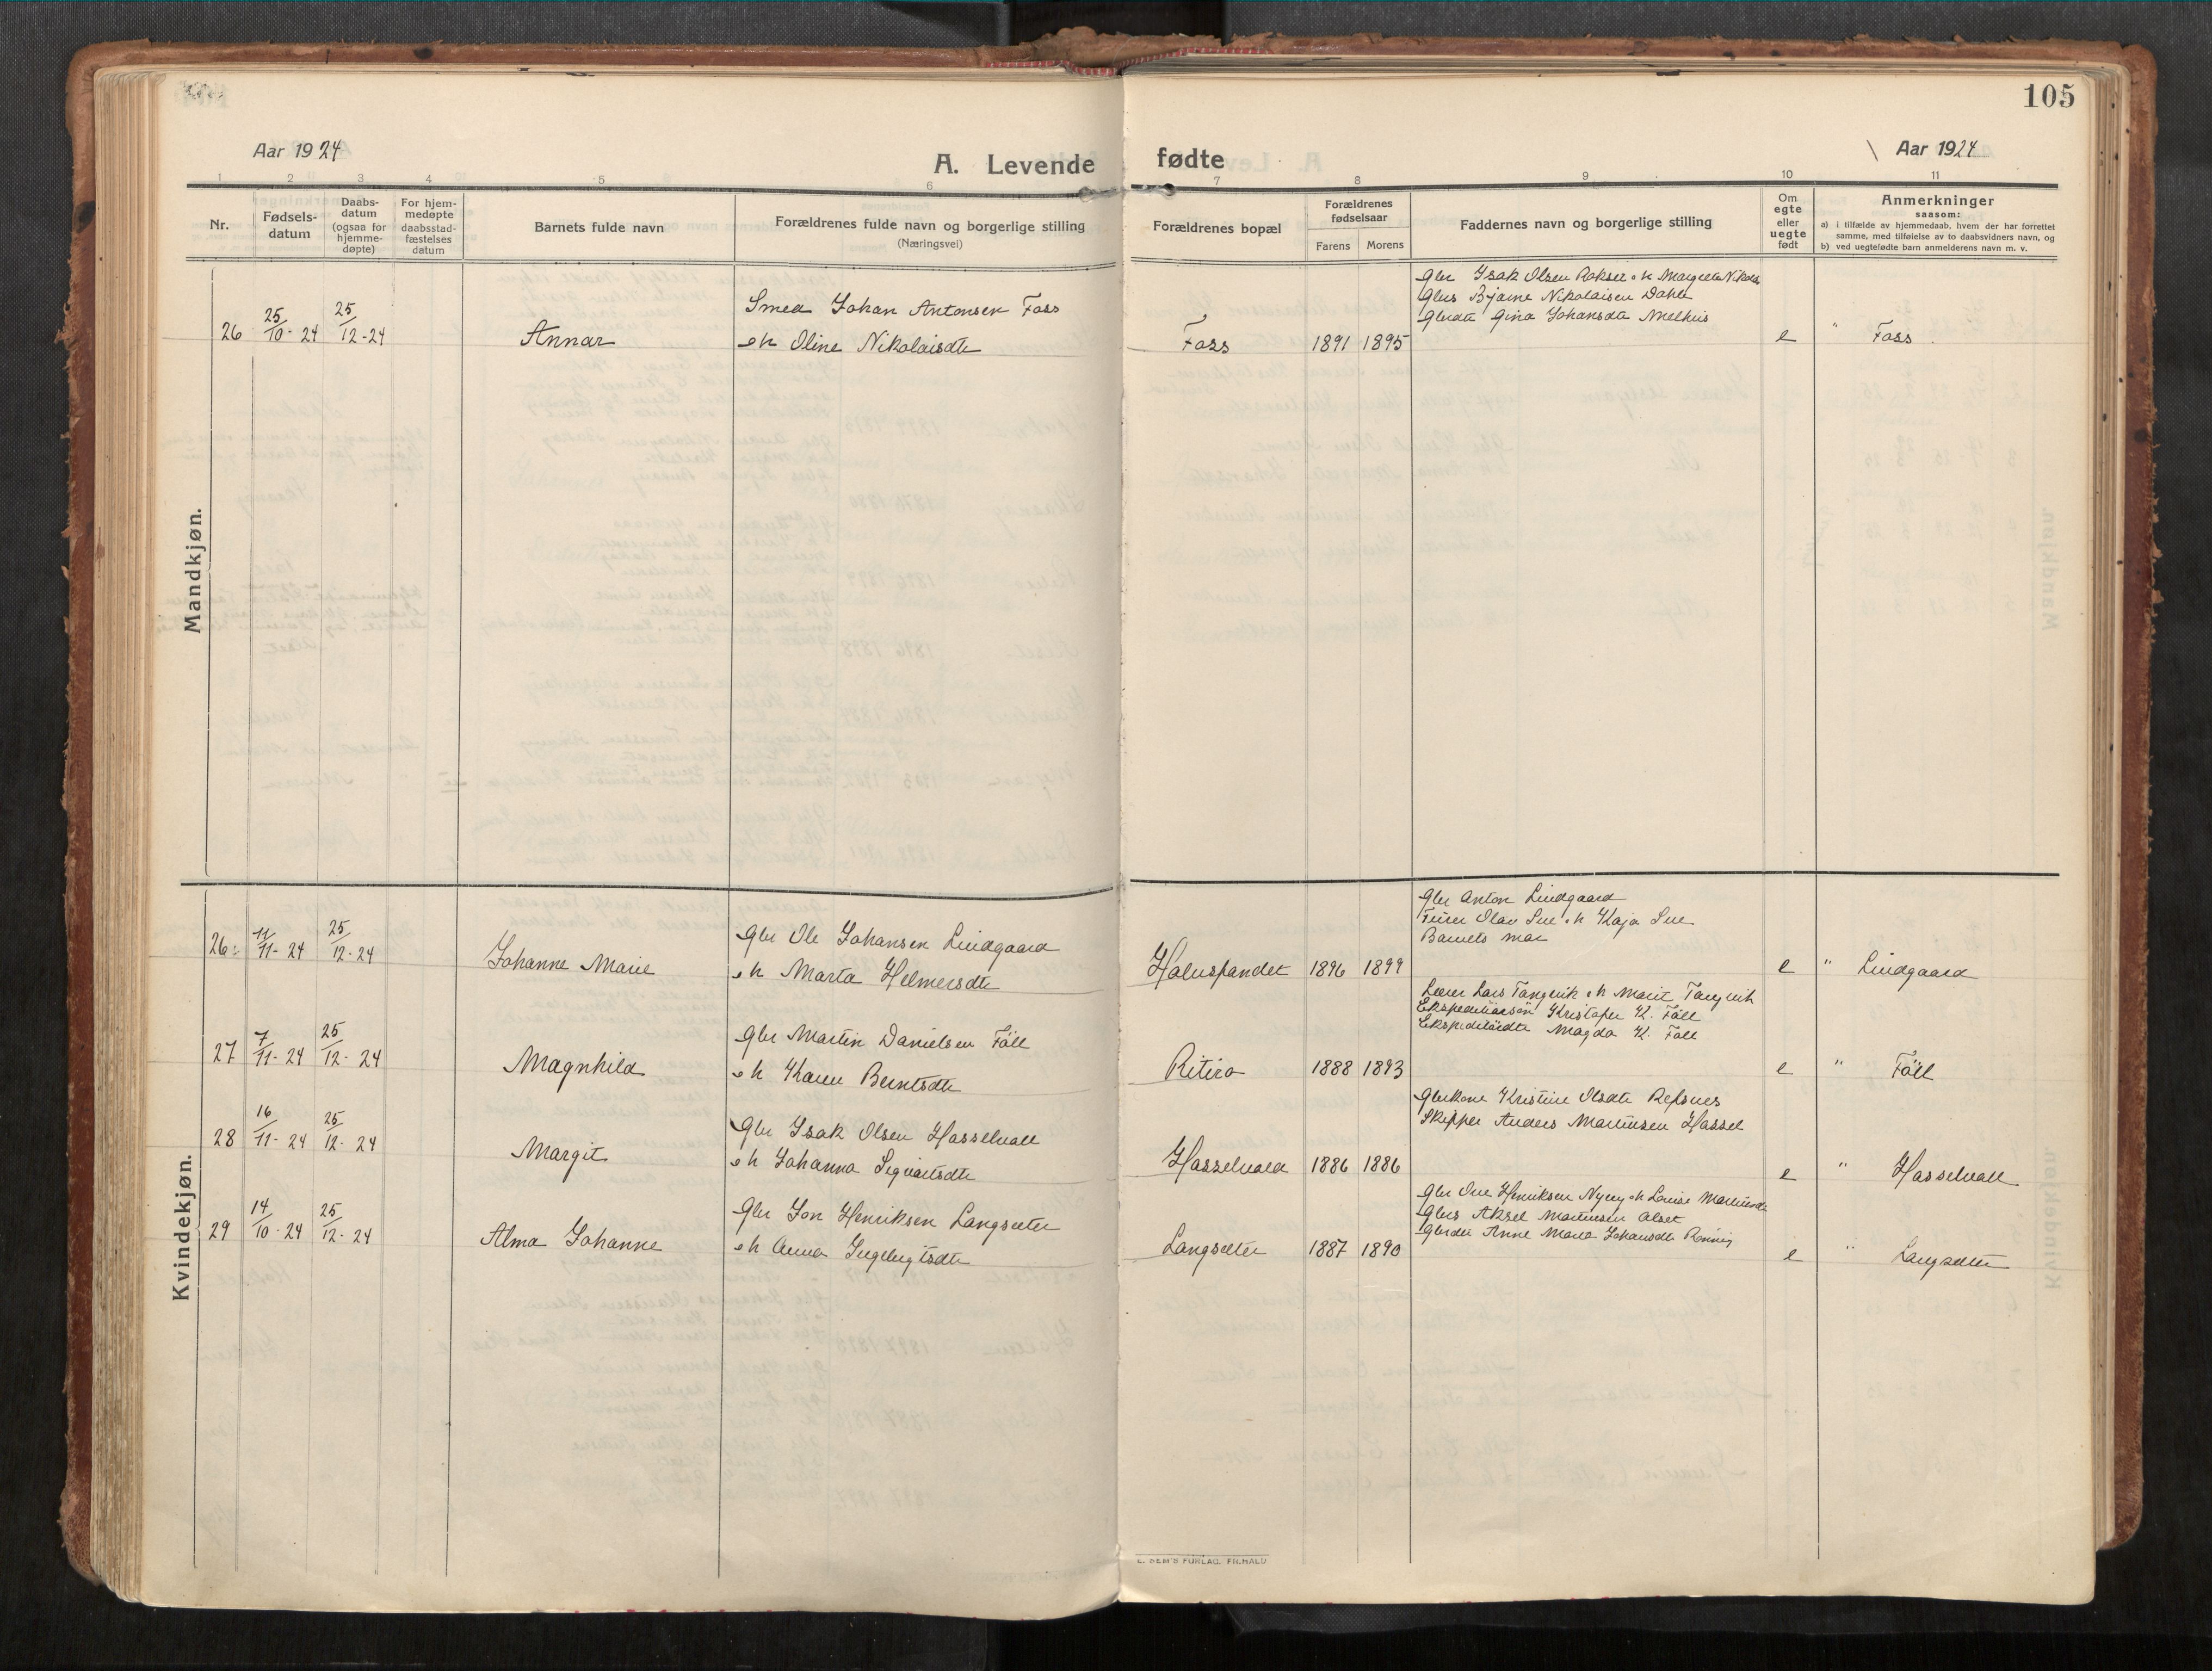 105
Aar 1924
A. Levende fødte
Aar 1924
1 2 3 4 5 6 7 8 9 10 11
Nr.
Fødsels-
datum
Daabs-
datum
(ogsaa for
hjemme-
døpte)
For hjem-
medøpte
daabsstad-
fæstelses
datum
Barnets fulde navn
Forældrenes fulde navn og borgerlige stilling
(Næringsvei)
Forældrenes bopæl
Forældrenes
fødselsaar
Farens Morens
Faddernes navn og borgerlige stilling
Om
egte
eller
uegte
født
Anmerkninger
saasom:
a) i tilfælde av hjemmedaab, hvem der har forrettet
samme, med tilføielse av to daabsvidners navn, og
b) ved uegtefødte barn anmelderens navn m. v.
Mandkjøn.
26 25/10-24 25/12-24 Annar
Smed Johan Antonsen Foss
o h Oline Nikolaisdtr
Foss 1891 1895
Gbr Isak Olsen o h Margrete Nikols
Gbrs Bjarne Nikolaisen Dahle
Gbrdtr Gina Johansdtr Melhus
e " Foss
Kvindekjøn.
26 11/11-24 25/12-24 Johanne Marie
Gbr Ole Johansen Lindgaard
o h Marta Helmersdtr
1896 1899
Gbr Anton Lindgaard
Olav Sve o h Kaja Sve
Barnets mor
e " Lindgaard
27 7/11-24 25/12-24 Magnhild
Gbr Martin Danielsen Föll
o h Karen Berntsdtr
Ritira 1888 1893
Lærer Lars Tangvik o h Marie Tangvik
Kristofer K. Föll
Magda K. Föll
e " Föll
28 16/11-24 25/12-24 Margit
Gbr Isak Olsen Hasselvall
o h Johanna Sigvartsdtr
Hasselvold 1886 1886
Gbrkone Kristine Olsdtr Refsnes
Skipper Anders Martinsen Hassel
e " Hasselvall
29 14/10-24 25/12-24 Alma Johanne
Gbr Jon Henriksen Langsæter
o h Anna Ingebrigtsdtr
Langsæter 1887 1890
Gbr Ove Henriksen o h Louise Martinsdtr
Gbrs Aksel Martinsen Alset
Gbrdtr Anne Maria Johansdtr
e " Langsæter
E. SEM'S FORLAG, FR.HALD